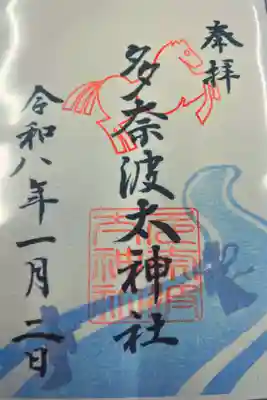 奉拝
多奈波太神社
令和八年一月二日